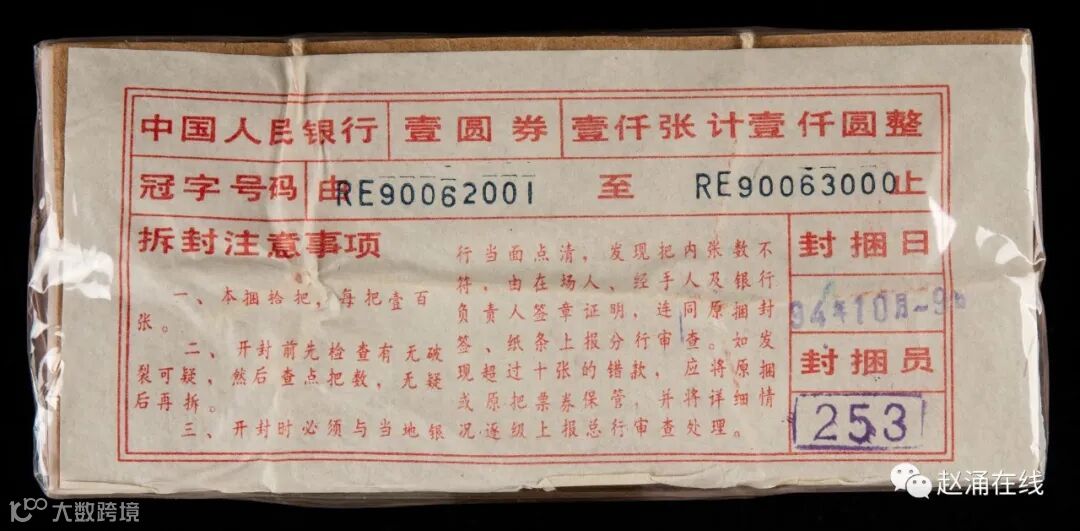 中国人民银行 壹圆券 壹仟张计壹仟圆整
冠字号码 由RE90062001 至 RE90063000止
拆封注意事项
一、本捆拾把，每把壹百
张。
二、开封前先检查有无破
裂可疑，然后查点把数，无疑
后再拆。
三、开封时必须与当地银
行当面点清，发现把内张数不
符，由在场人、经手人及银行
负责人签章证明，连同原捆封
签、纸条上报分行审查。如发
现超过十张的错款，应将原捆
或原把票券保管，并将详细情
况逐级上报总行审查处理。
封捆日
94年10月
封捆员
253
大数跨境
赵涌在线